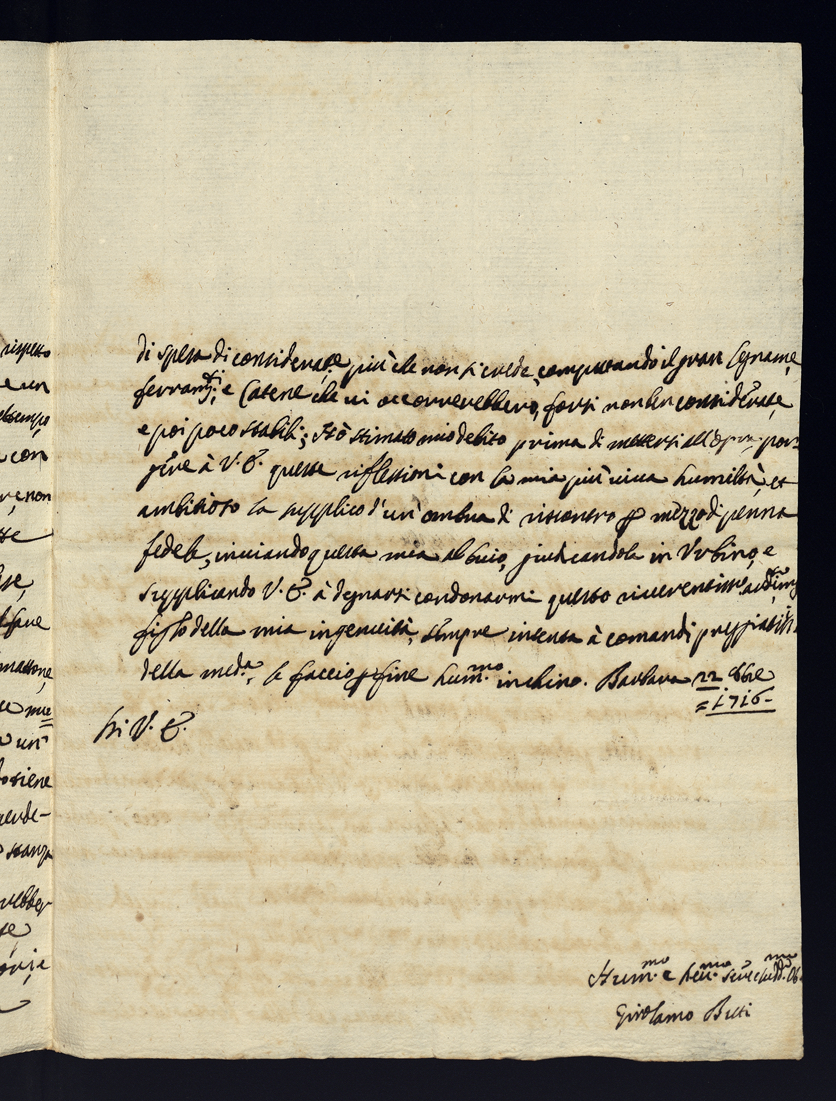 rispetto
e un
con
non
mattone,
un'
stanze
di spesa di considerazne più che non si crede computando il gran legname,
ferramti, e Catene che vi occorrerebbero, forsi non ben considerate,
e poi poco stabili; Hò stimato mio debito prima di mettersi all'opra por=
gere à V. E. queste riflessioni con la mia più viva humiltà, et
ambitioso la supplico d'un'ombra di riscontro p mezzo di penna
fedele, inviando questa mia al buio, giudicandola in Urbino, e
supplicando V. E. à degnarsi condonarmi questo riverentissmo ardimto
figlio della mia ingenuità, sempre intenta à comandi preggiatissi
della meda, le faccio p fine hummo inchino. Barbara 22 8bre
= 1716 -
Di V. E.
Hummo e Devmo Serre
Girolamo Betti